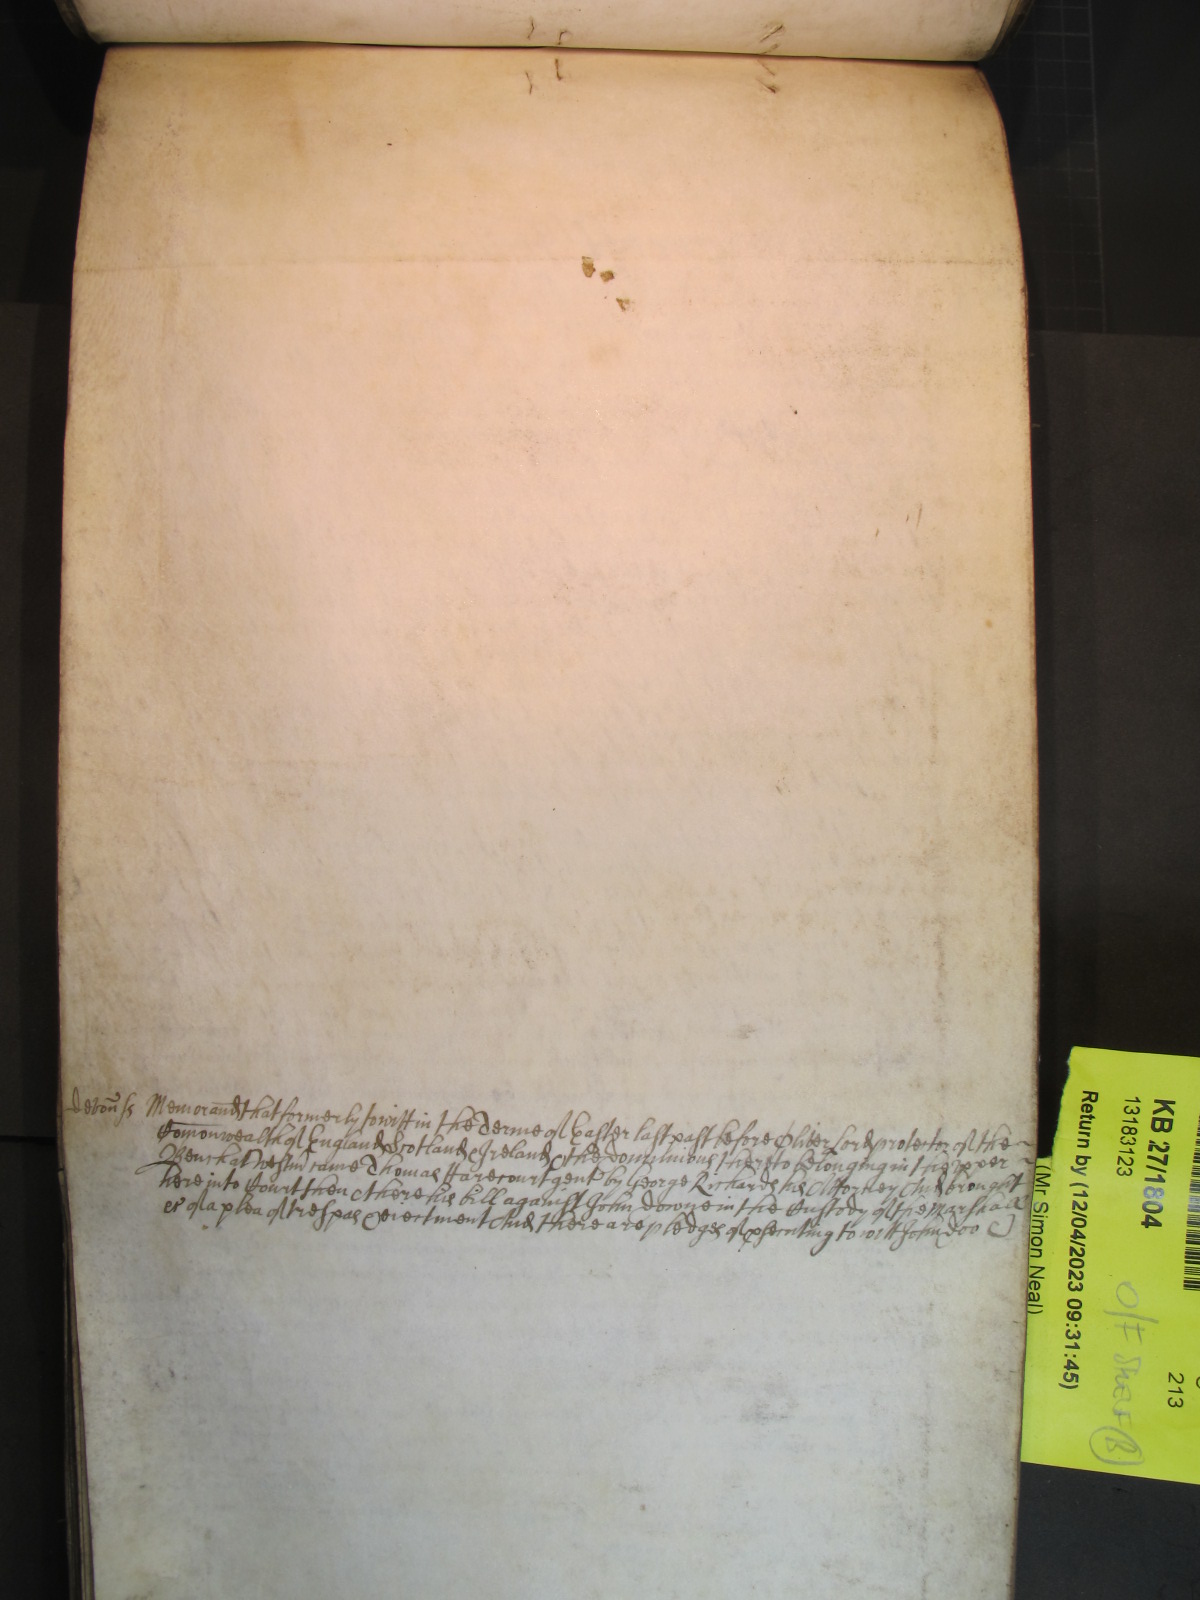 Devon ss Memorand that formerly towitt in the Terme of Easter last past before Oliver Lord protector of the
Comonwealth of England Scotland & Ireland & the dominions thereto belonging in the vpper
Bench at Westm came Thomas Harecourt gent by George Richards his Attorney And brought
here into Court then & there his bill against John Downe in the Custody of the Marshall
&c of a plea of trespas & eiectment And there are pledges of psecuting to witt John Doo
KB 27/1804
13183123
213
Return by (12/04/2023 09:31:45)
(Mr Simon Neal)